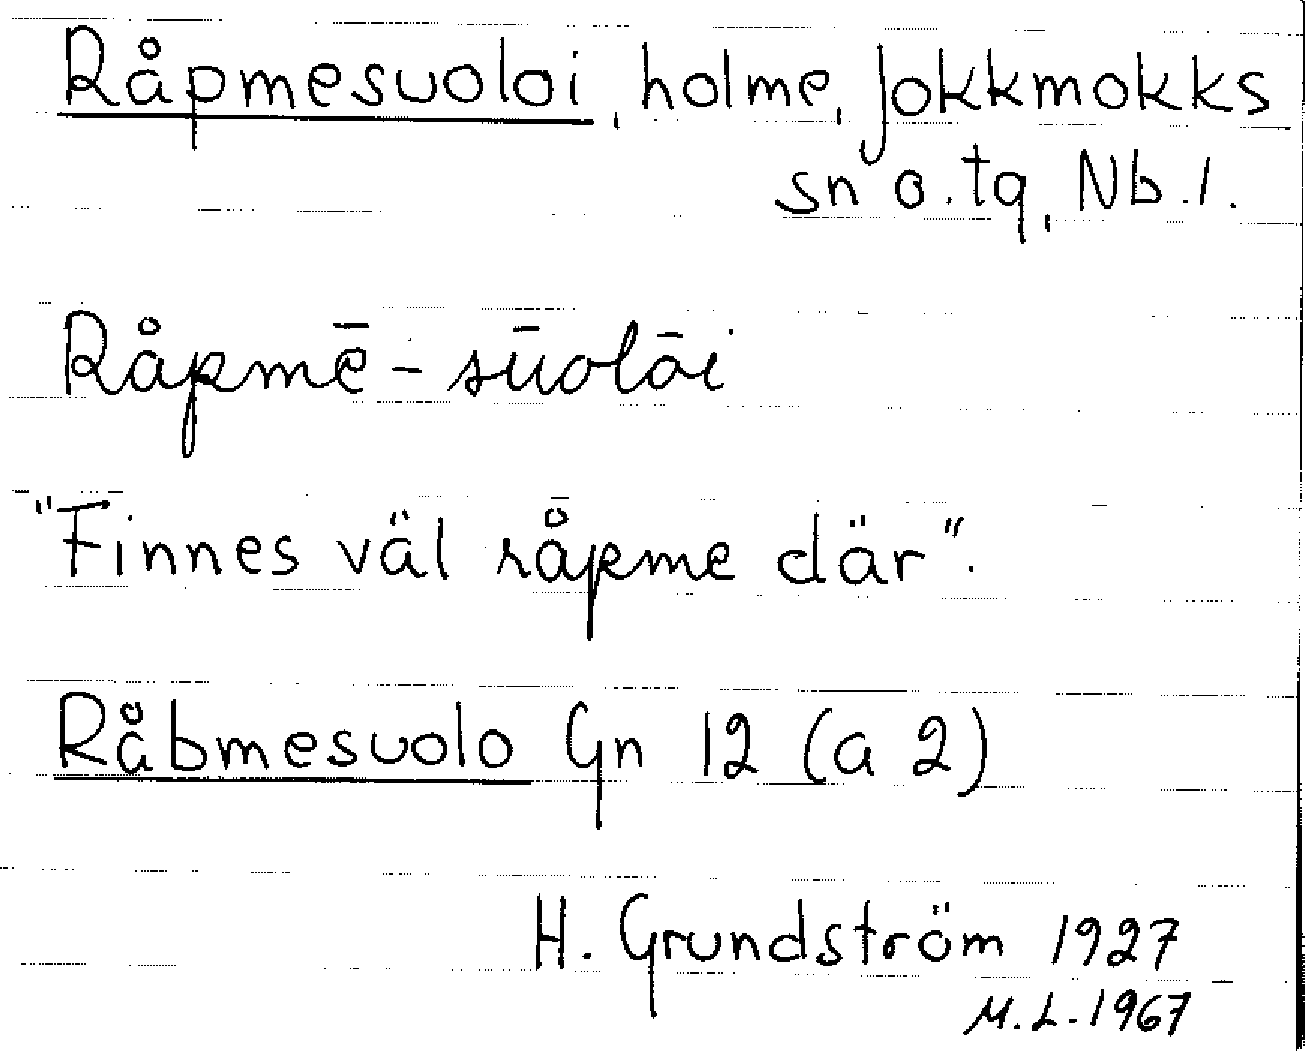 Råpmesuoloi, holme, Jokkmokks
sn o. tg, Nb. l.
Råpmē-sūolōi
"Finnes väl råpme där".
Råbmesuolo Gn 12 (a 2)
H. Grundström 1927
M.L. 1967